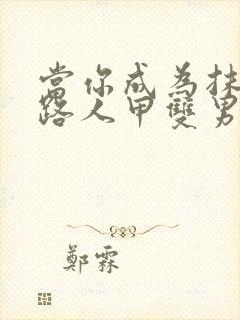 當你成為抹
路人甲雙男
鄭霖